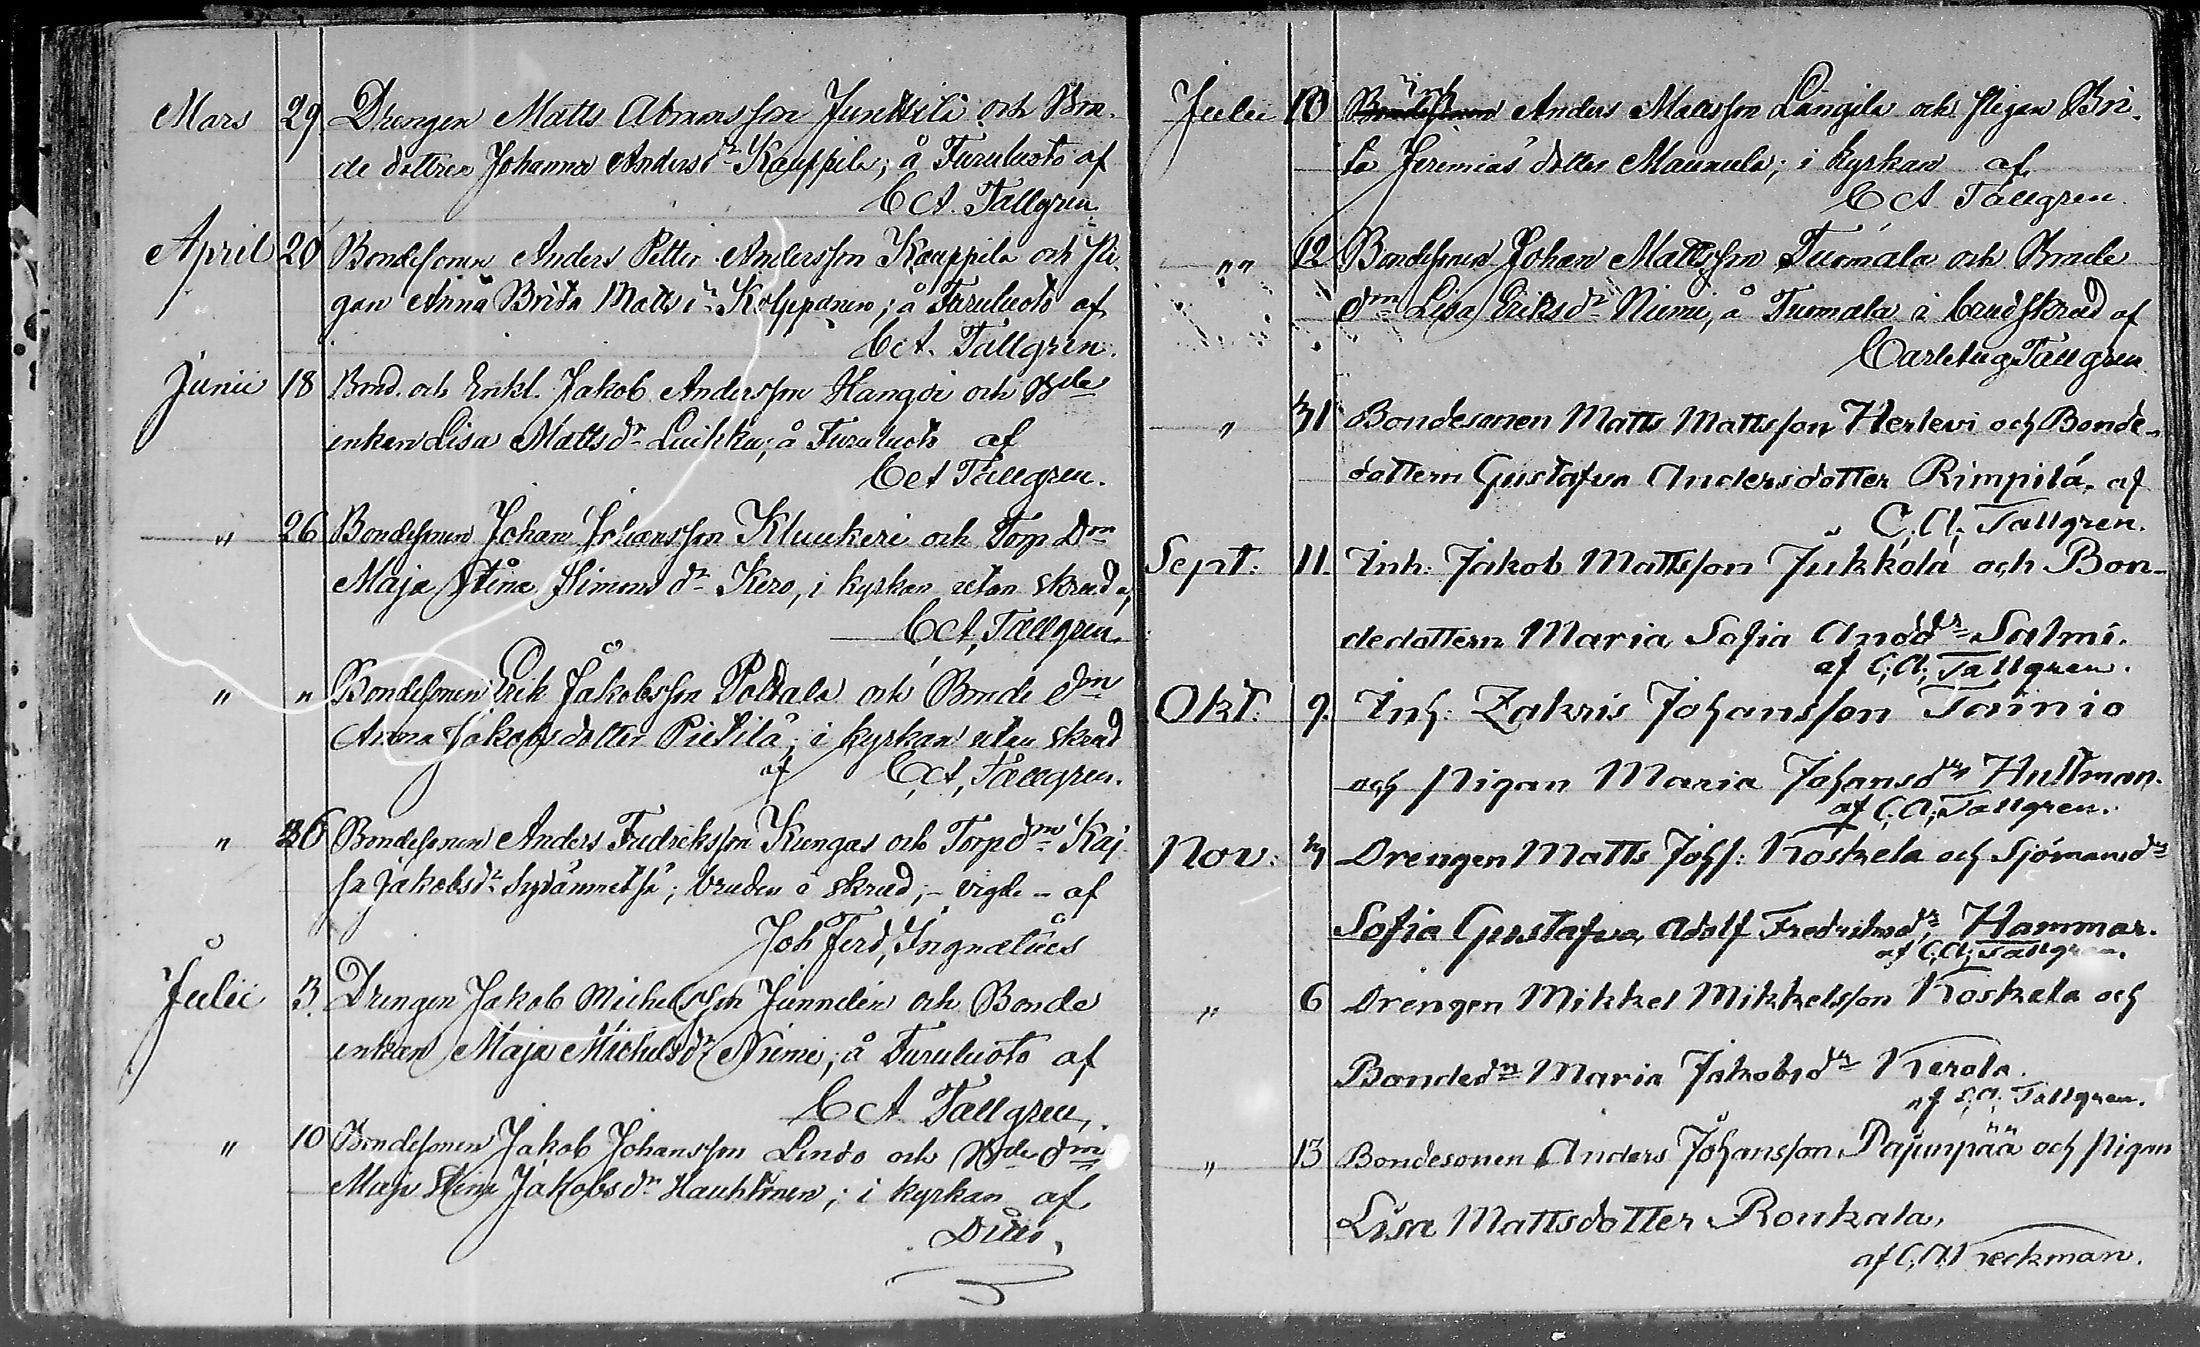 Mars 29 Drengen Matts Abramsson Junttila och Bon-
de dottren Johanna Andersdr Kauppila; å Turuluoto af
C A. Tallgren
April 20 Bondesonen Anders Petter Andersson Kauppila och Pi-
gan Anna Brita Mattsdr Kolppanen; å Turuluoto af
C A. Tallgren.
Junii 18 Bond. och Enkl. Jakob Andersson Hangoi och Bde
enkan Lisa Mattsdr Luikku; å Turuluoto af
C A Tallgren.
" 26 Bondesonen Johan Johansson Kluukeri och Torp Drn
Maja Stina Simonsdr Kero, i kyrkan utan skrud af
C A, Tallgren.
" " Bondesonen Erik Jakobsson Poldala och Bonde drn
Anna Jakobsdotter Pietilä; i kyrkan utan skrud
af C, A, Tallgren.
" 26 Bondesonen Anders Fredriksson Kungas och Torpdrn Kaj
sa Jakobsdr Sydänmetsä; bruden i skrud; - vigde - af
Joh Ferd, Ingnatius
Julii 3. Drengen Jakob Michelsson Junnelin och Bonde
enkan Maja Michelsdr Niemi; å Turuluoto af
C A Tallgren,
" 10 Bondesonen Jakob Johansson Lindo och Bde drn
Maja Stina Jakobsdr Hauhtonen; i kyrkan af
Dito,
Julii 10 Inh Anders Mattsson Längilä och Pigan Bri-
ta Jeremias dotter Maunula; i kyrkan af
C A Tallgren.
"" 12 Bondesonen Johan Mattsson Tuomala och Bonde
drn Lisa Eriksdr Niemi, å Tuomala i brudskrud af
Carl Aug Tallgren
" 31 Bondesonen Matts Mattsson Herlevi och Bonde-
dottern Gustafva Andersdotter Rimpilä, af
C, A, Tallgren.
Sept: 11. Inh: Jakob Mattsson Jukkola och Bon-
dedottern Maria Sofia Andsdr Salmi.
af C, A, Tallgren.
Okt: 9. Inh: Zakris Johansson Tainio
och Pigan Maria Johansdr Hultman.
af C, A, Tallgren.
Nov: Drengen Matts Johs: Koskela och Sjömansdr
Sofia Gustafva Adolf Fredriksdr Hammar.
af C, A, Tallgren.
" 6 Drengen Mikkel Mikkelsson Koskela och
Bondedr Maria Jakobsdr Kerola.
af C, A, Tallgren.
" 13 Bondesonen Anders Johansson Pajunpää och Pigan
Lisa Mattsdotter Roukala,
af C, A, Keckman.